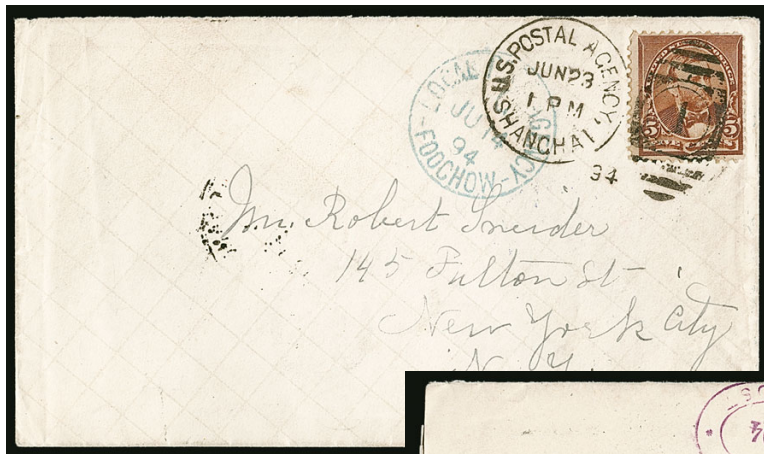 U.S. POSTAL AGENCY,
JUN 23
1 PM
SHANGHAI
94
LOCAL POST AGENCY
JU 14
94
FOOCHOW
5 5
Mr. Robert Sneider
145 Fulton St
New York City
N.Y.